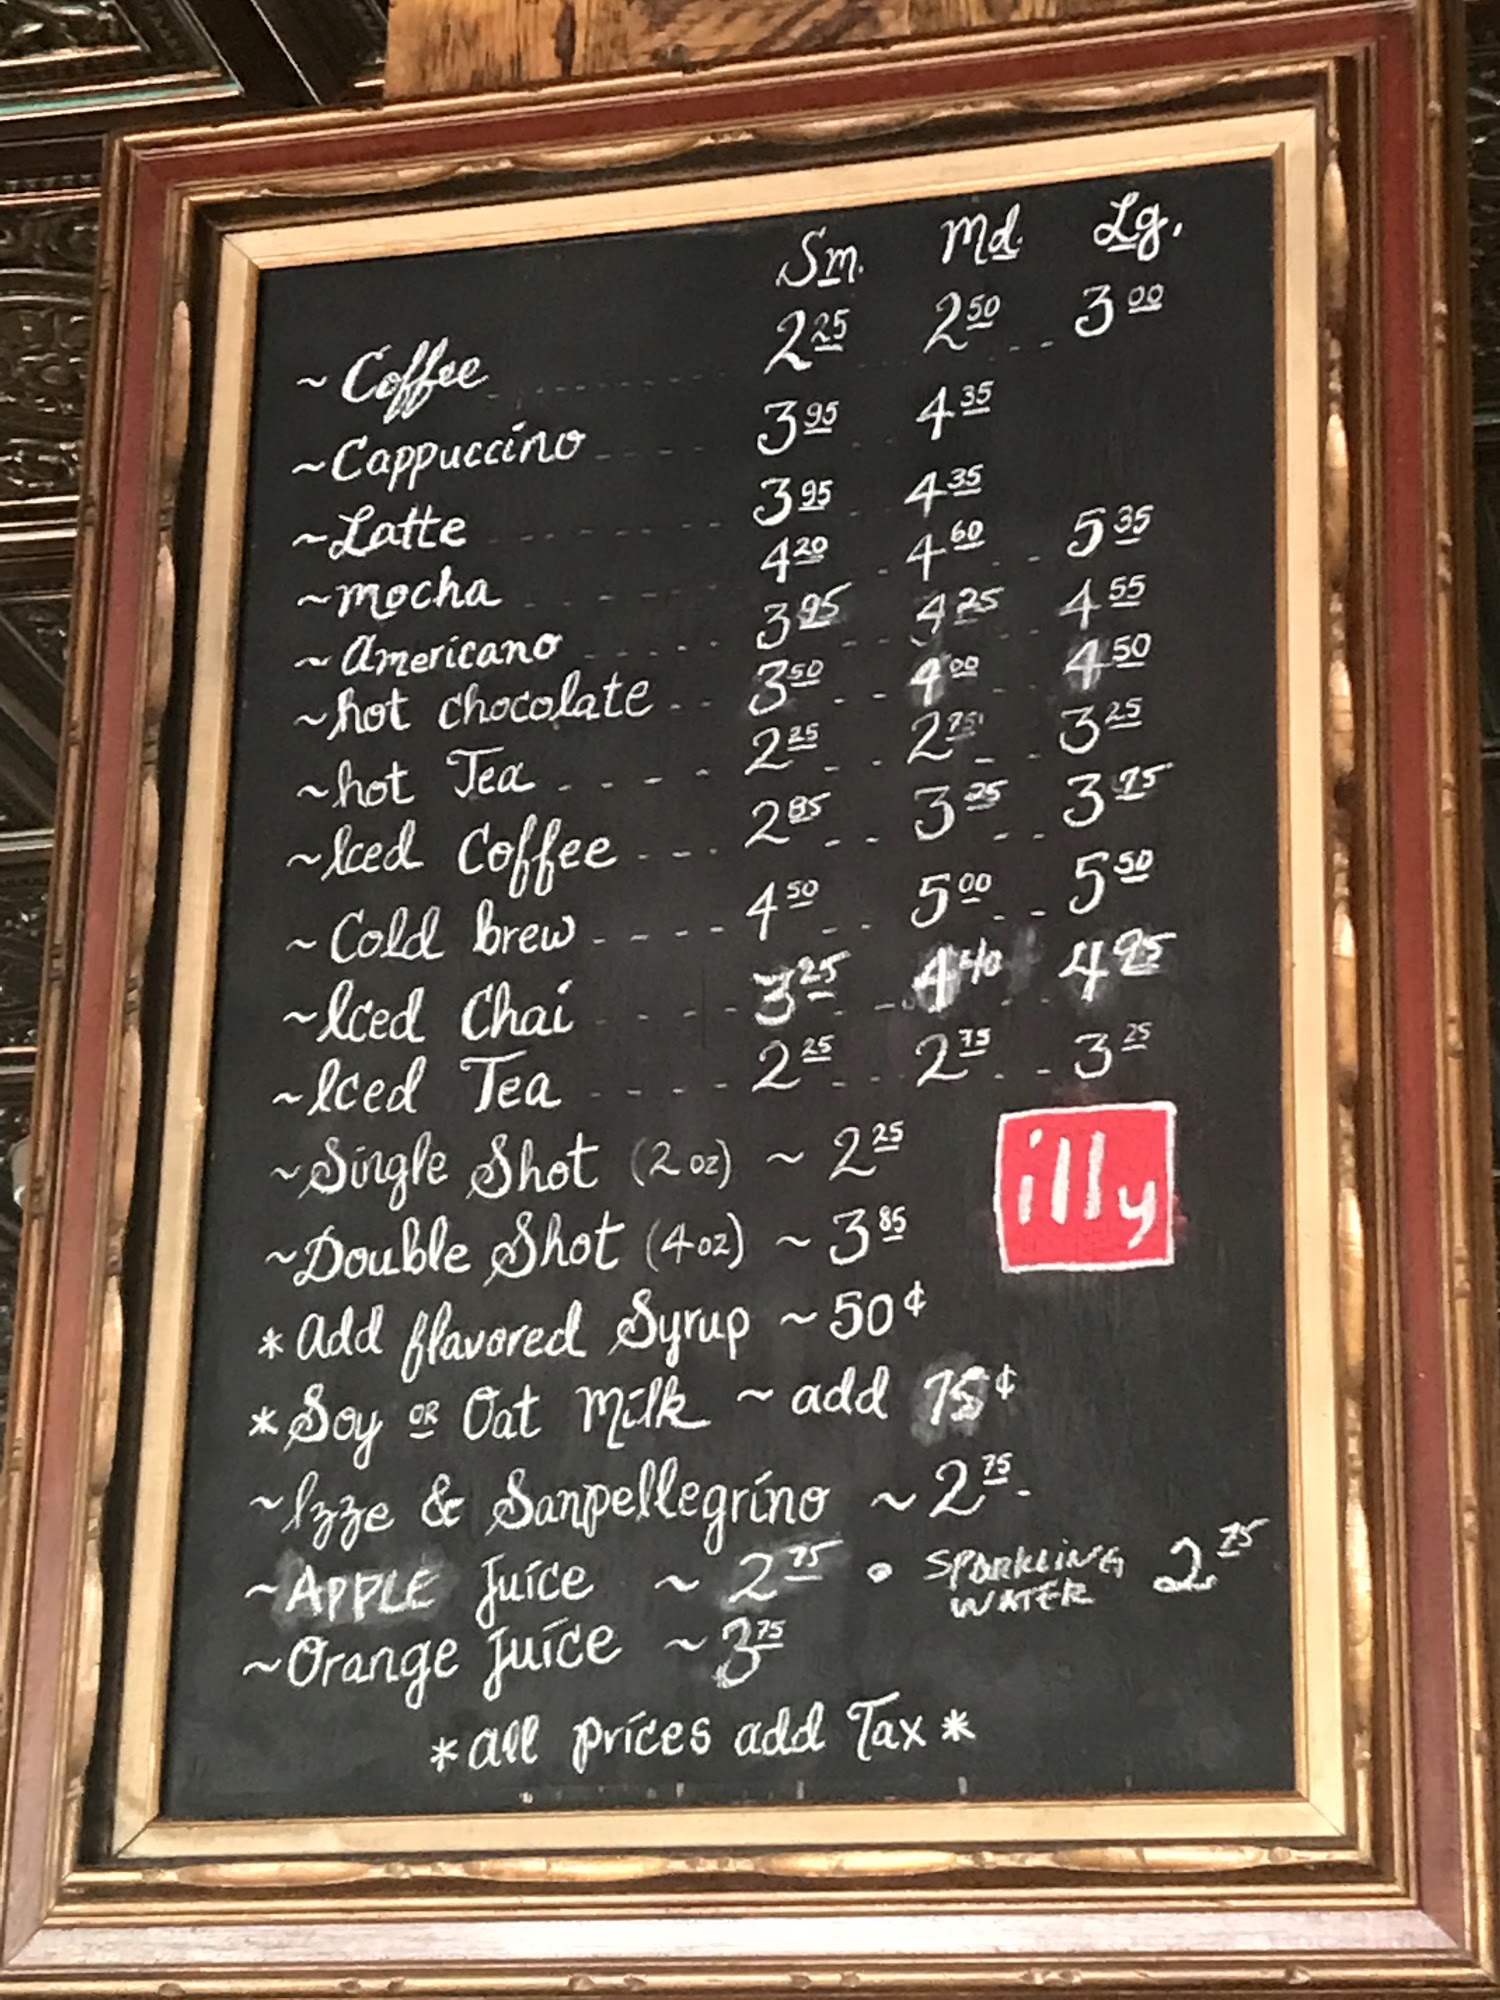 Sm. Md. Lg.
~Coffee 2.25 2.50 3.00
~Cappuccino 3.95 4.35
~Latte 3.95 4.35
~Mocha 4.20 4.60 5.35
~Americano 3.95 4.25 4.55
~hot chocolate 3.50 4.00 4.50
~hot Tea 2.25 2.75 3.25
~Iced Coffee 2.85 3.25 3.75
~Cold brew 4.50 5.00 5.50
~Iced Chai 3.25 4.40 4.95
~Iced Tea 2.25 2.75 3.25
~Single Shot (2oz) ~ 2.25
illy
~Double Shot (4oz) ~ 3.85
*Add flavored Syrup ~ 50¢
*Soy OR Oat Milk ~ add 75¢
~Izze & Sanpellegrino ~ 2.75
~APPLE Juice ~ 2.75 • SPARKLING WATER 2.75
~Orange Juice ~ 3.75
*all prices add Tax*